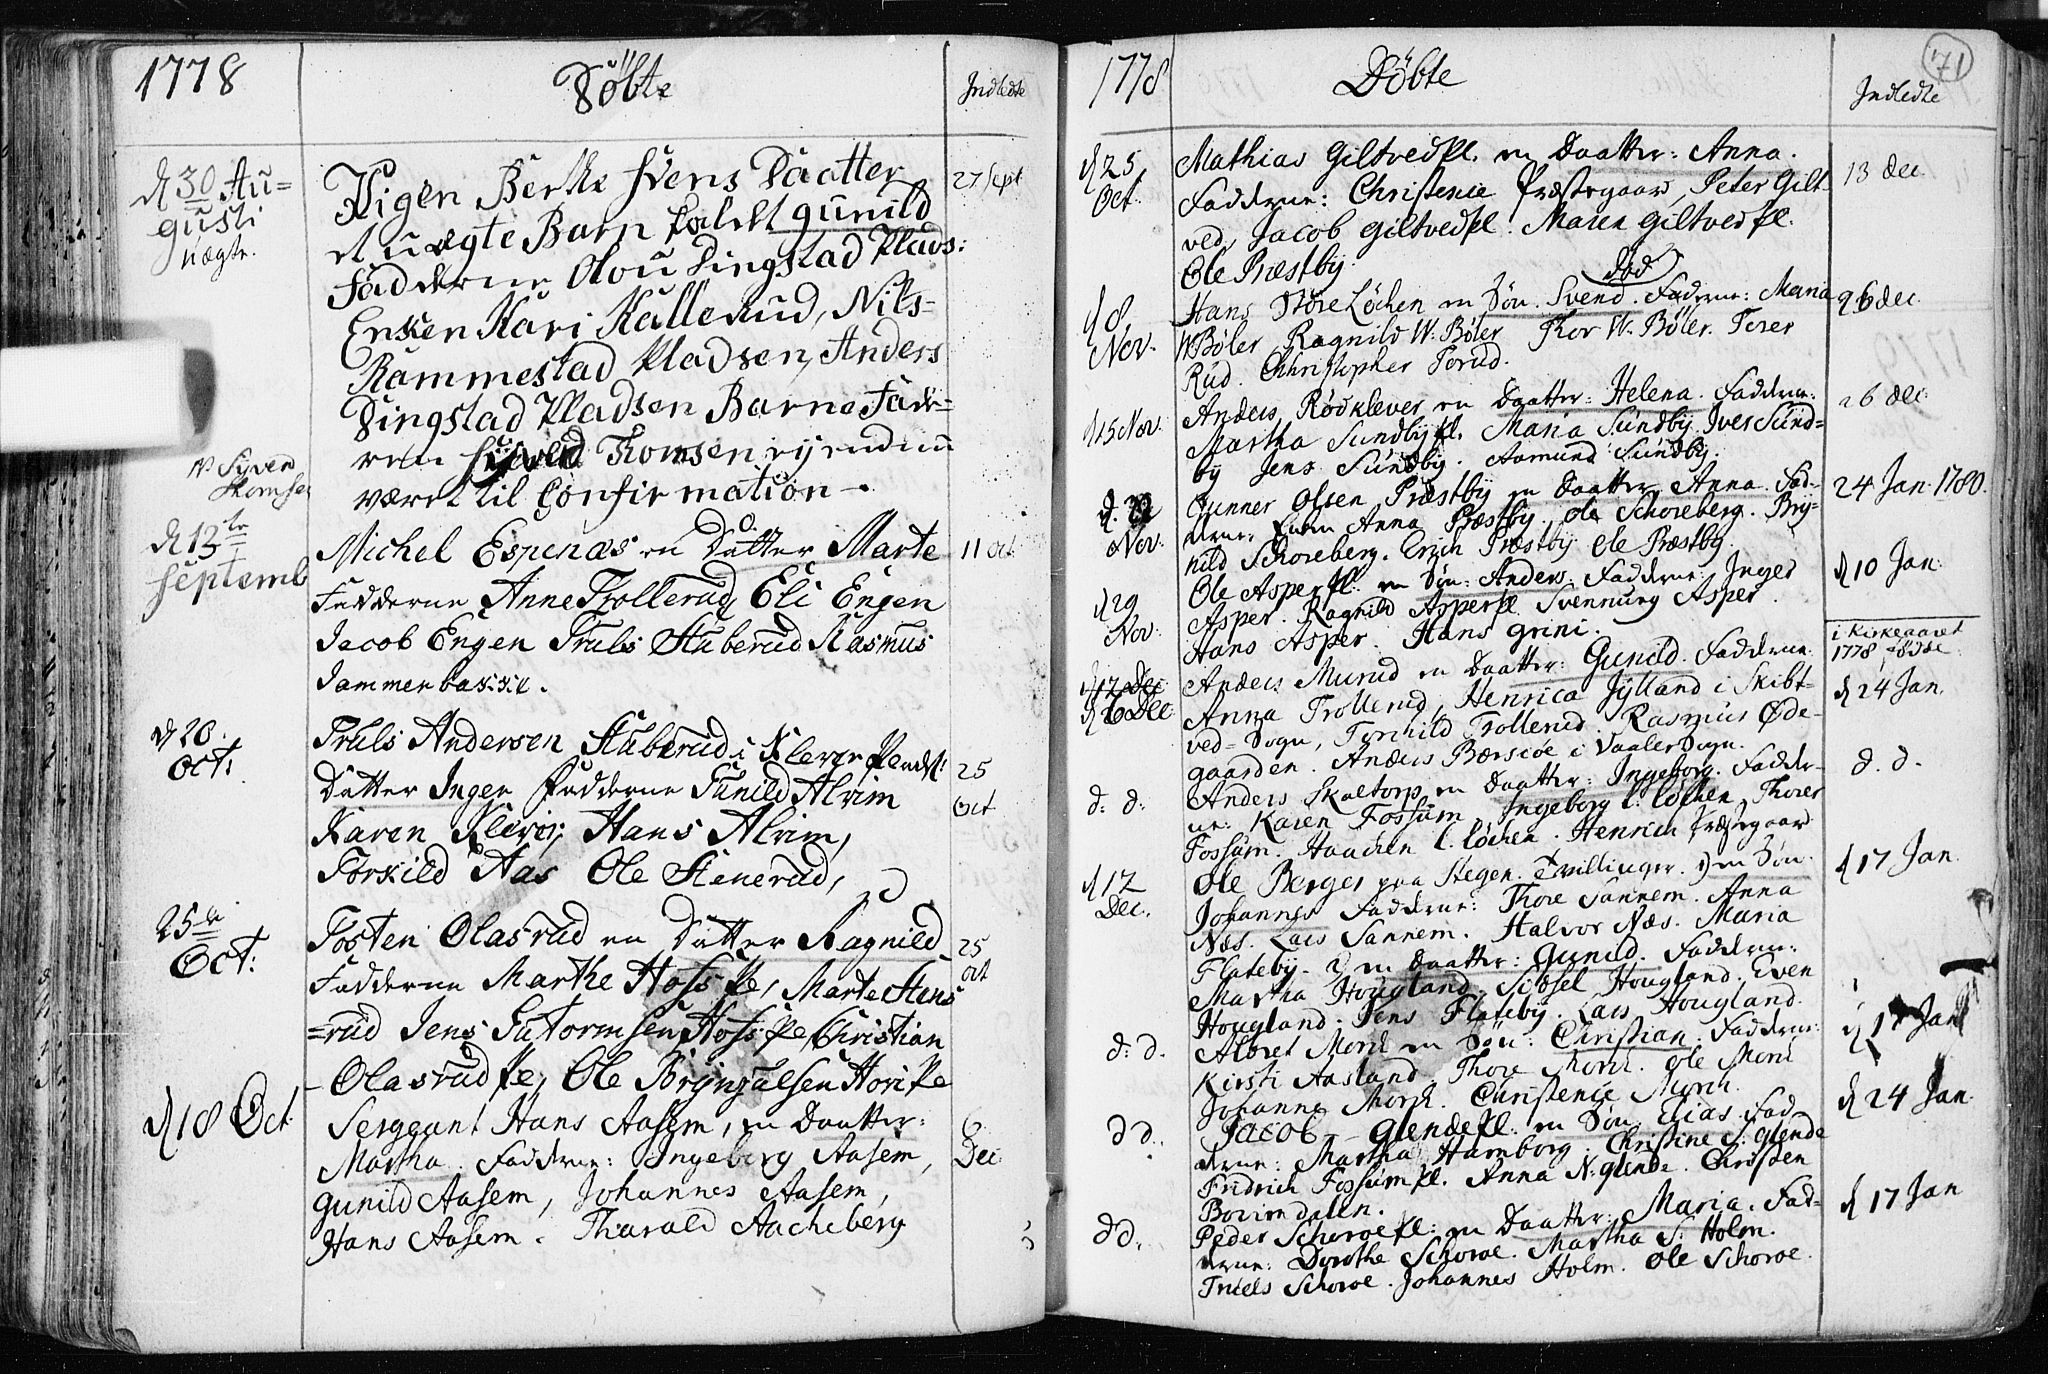 1778
Döbte
Indledte
d 30 Au=
gusti
uægte.
Pigen Berthe Svens Daatter
27 Sept
et uægte Barn kaldet gunild
Fadderne Olou Dingstad Plads:
Enken Kari Kallerud, Nils=
Rammestad Pladsen, Anders
Dingstad Pladsen Barne Fade=
ren Syver Thomsen ej endnu
været til Confirmation.
Syver
Thomsen
d 13te
Septemb
Michel Espenæs en Datter Marte
11 oct
Fadderne Anne Trollerud, Eli Engen
Jacob Engen Truls Stuberud Rasmus
Dammenbak
d 20.
Oct:
Truls Andersen Stuberud i Klever
Datter Inger Fadderne Gunild Alvim
25
Oct
Karen Klever, Hans Alvim,
Torkild Aas Ole Stenerud,
25de
Oct:
Tosten Olasrud en Datter Ragnild
25
oct
Fadderne Marthe Hoss Pe, Marte Stens
=rud Jens Gutormsen Hoss pe, Christian
Olasrud Pe, Ole Brynjulsen Hori Pe
d 18 Oct
Sergeant Hans Aasem, en Daatter:
6
Dec:
Martha. Fadderne: Ingeborg Aasem,
Gunild Aasem, Johannes Aasem,
Hans Aasem. Tharald Aacheberg
71
1778
Döbte
Indledte
d 25
Oct.
Mathias Giltvedpl. en Daatter: Anna.
13 Dec.
Fadderne: Christence Præstegaard, Peter Gilt-
ved, Jacob Giltvedpl. Maren Giltvedpl.
Ole Præstby.
d 8
Nov.
Hans Store Löchen en Sön. Svend. Fadderne: Maria
26 Dec.
W Bøler, Ragnild W. Bøler Thor W. Bøler. Torer
Rud. Christopher Torud.
d 15 Nov.
Anders Rødklever en Daatter: Helena. Fadderne:
26 Dec:
Martha Sundbypl. Maria Sundby. Iver Sund=
by Jens Sundby. Aamund Sundby.
d. 22
Nov.
Gunner Olsen Præstby en Daatter, Anna. Fad-
24 Jan. 1780.
derne: Anna Præstby, Ole Schoreberg. Bry-
nild Schoreberg. Erich Præstby Ole Præstby.
d 29
Nov:
Ole Asperpl. en Sön: Anders. Fadderne: Inger
d 10 Jan:
Asper. Ragnild Asperpl. Svennung Asper.
Hans Asper. Hans Grini.
i Kirkeaaret
1778 födde
d 12 Dec
d 6 Dec
Anders Murud en Daatter: Gunild. Fadderne:
d 24 Jan.
Anna Trollerud, Henrica Jylland i Skibt-
ved-Sogn, Tornhild Trollerud. Rasmus Øde-
gaarden. Anders Bærsiøe i Vaaler Sogn.
d: d:
Anders Skaltorp en Daatter: Ingeborg. Fadder-
d. d.
ne: Karen Fossum Ingeborg l: Löchen, Thorer
Fossum. Haachen l. Löchen. Henrich Præstegaard
d 12
Dec.
Ole Berger paa Stegen. Tvillinger. 1) en Sön.
d 17 Jan.
Johannes Fadderne: Thore Sannem. Anna
Næs. Lars Sannem. Halvor Næs. Maria
Flateby. 2) en Daatter: Gunild. Fadderne:
Martha Hougland. Sidsel Hougland. Even
Hougland. Jens Flateby. Lars Hougland.
d: d.
Albret Morch en Sön: Christian. Fadderne:
d 17 Jan
Kirsti Aasland Thore Morch. Ole Morch
Johanne Morch. Christence Morch.
d d.
Jacob Glendepl. en Sön Elias. Fad
d 24 Jan.
derne: Martha Hamborg. Christine S. Glende
Fridrich Fossumpl. Anna N. glende. Christen
Borimdalen.
d d.
Peder Schoroepl: en Daatter: Maria. Fad-
d 17 Jan
derne: Dorothe Schoroe. Martha S. Holm.
Truels Schoroe. Johannes Holm. Ole Schoroe.